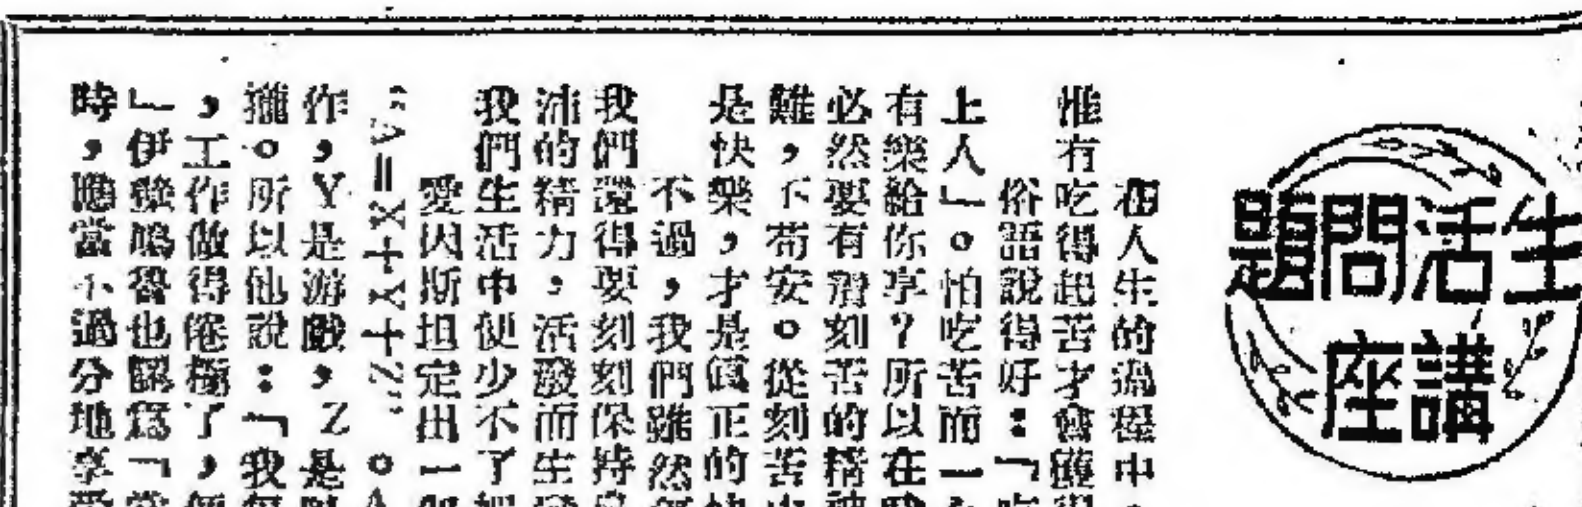 生活問題
講座
在人生的過程中，
惟有吃得起苦才會獲得
俗語說得好：「吃
上人」。怕吃苦而一
有樂給你享？所以在
必然要有習刻苦的精神
難，不苟安。從刻苦
是快樂，才是眞正的快
不過，我們雖然
我們還得要刻刻保持
沛的精力，活潑而生
我們生活中便少不了
愛因斯坦定出一個
"A=X+Y+Z"。A
作，Y是游戲，Z是
攏。所以他說：「我每
，工作做得倦極了，便
」伊 也認爲「當
時，應當不過分地享受